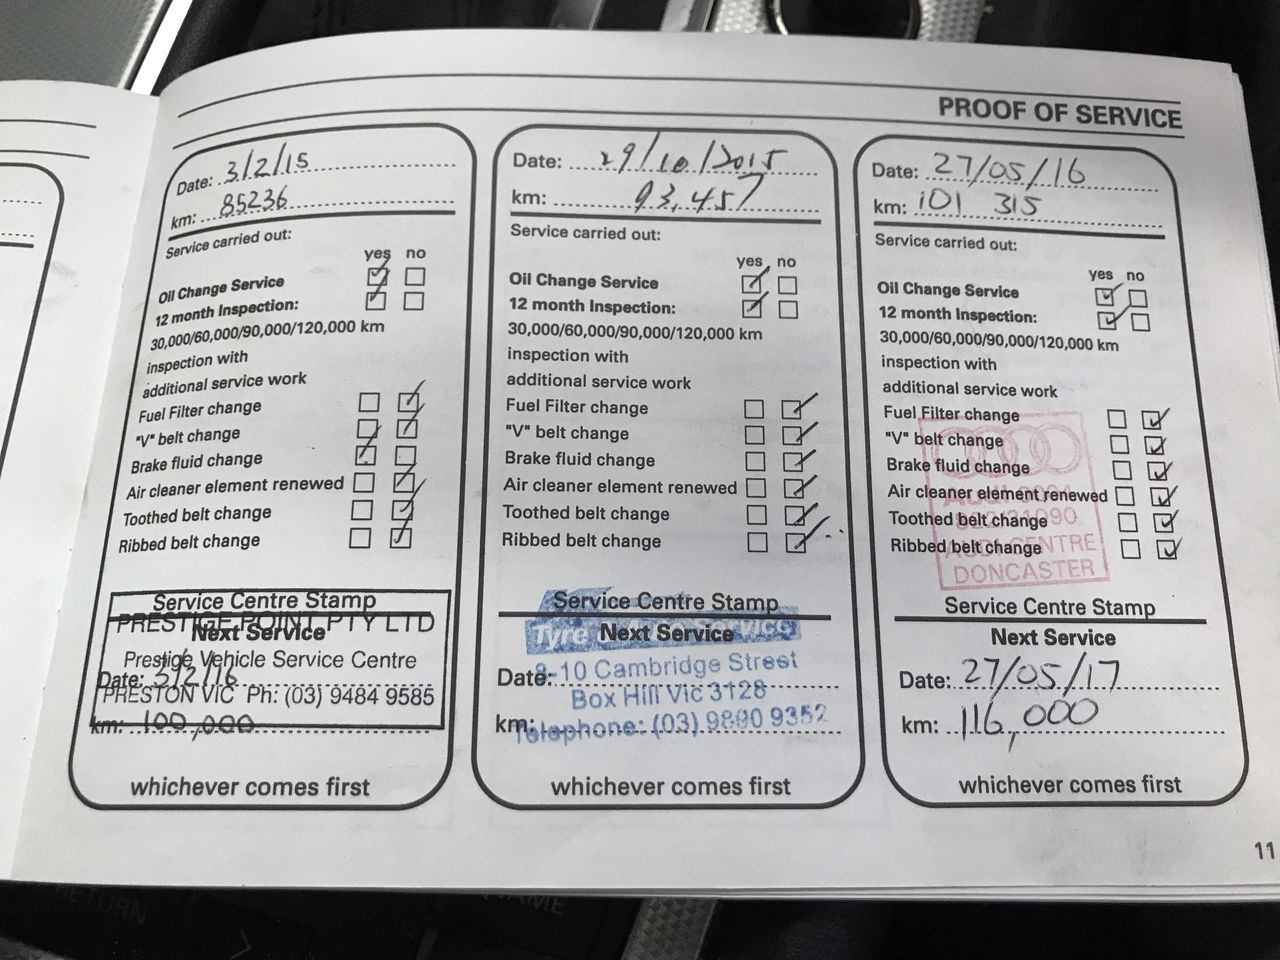 PROOF OF SERVICE
Date: 3/2/15
km: 85236
Service carried out:
yes no
Oil Change Service
12 month Inspection:
30,000/60,000/90,000/120,000 km
inspection with
additional service work
Fuel Filter change
"V" belt change
Brake fluid change
Air cleaner element renewed
Toothed belt change
Ribbed belt change
Service Centre Stamp
PRESTIGE POINT PTY LTD
Next Service
Prestige Vehicle Service Centre
Date: 3/2/16
PRESTON VIC Ph: (03) 9484 9585
km: 100,000
whichever comes first
Date: 29/10/2015
km: 93,457
Service carried out:
yes no
Oil Change Service
12 month Inspection:
30,000/60,000/90,000/120,000 km
inspection with
additional service work
Fuel Filter change
"V" belt change
Brake fluid change
Air cleaner element renewed
Toothed belt change
Ribbed belt change
Service Centre Stamp
Tyre Service
Next Service
8-10 Cambridge Street
Date:
Box Hill Vic 3128
km:
Telephone: (03) 9890 9352
whichever comes first
Date: 27/05/16
km: 101 315
Service carried out:
yes no
Oil Change Service
12 month Inspection:
30,000/60,000/90,000/120,000 km
inspection with
additional service work
Fuel Filter change
"V" belt change
Brake fluid change
Air cleaner element renewed
Toothed belt change
Ribbed belt change
AUDI CENTRE
DONCASTER
Service Centre Stamp
Next Service
Date: 27/05/17
km: 116,000
whichever comes first
11